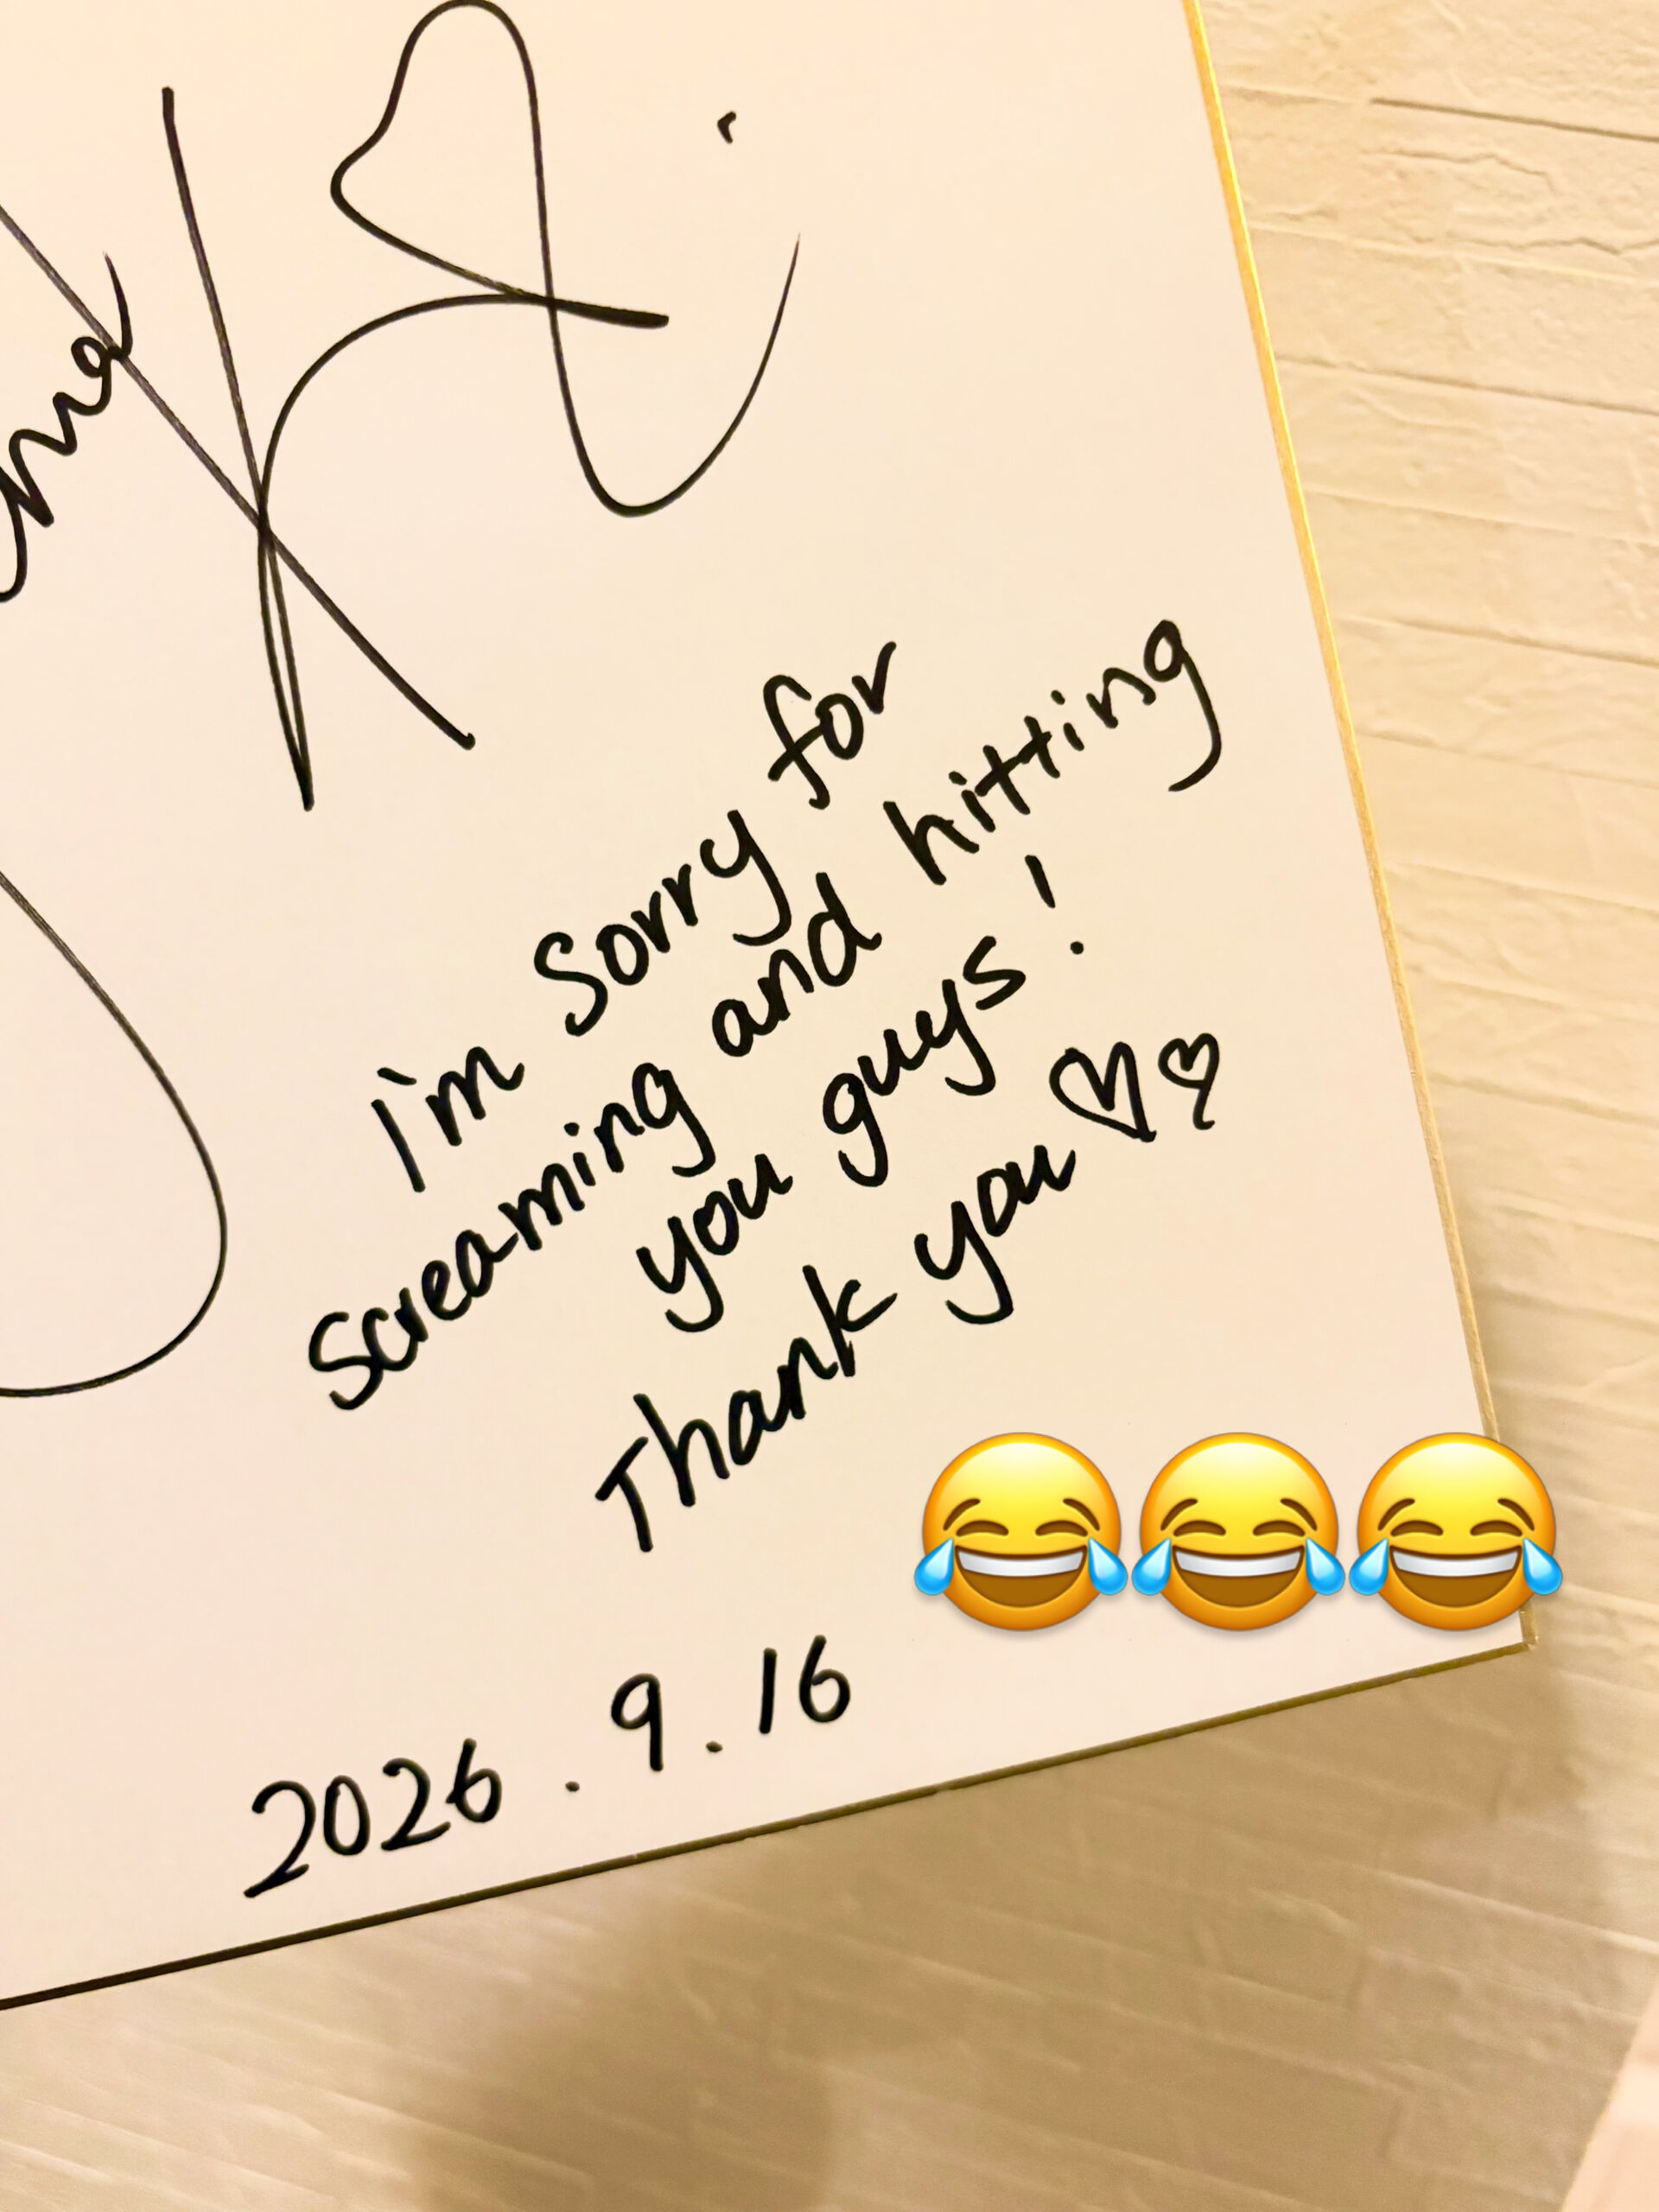 I'm Sorry for
Screaming and hitting
you guys!
Thank you ♡♡
2026.9.16